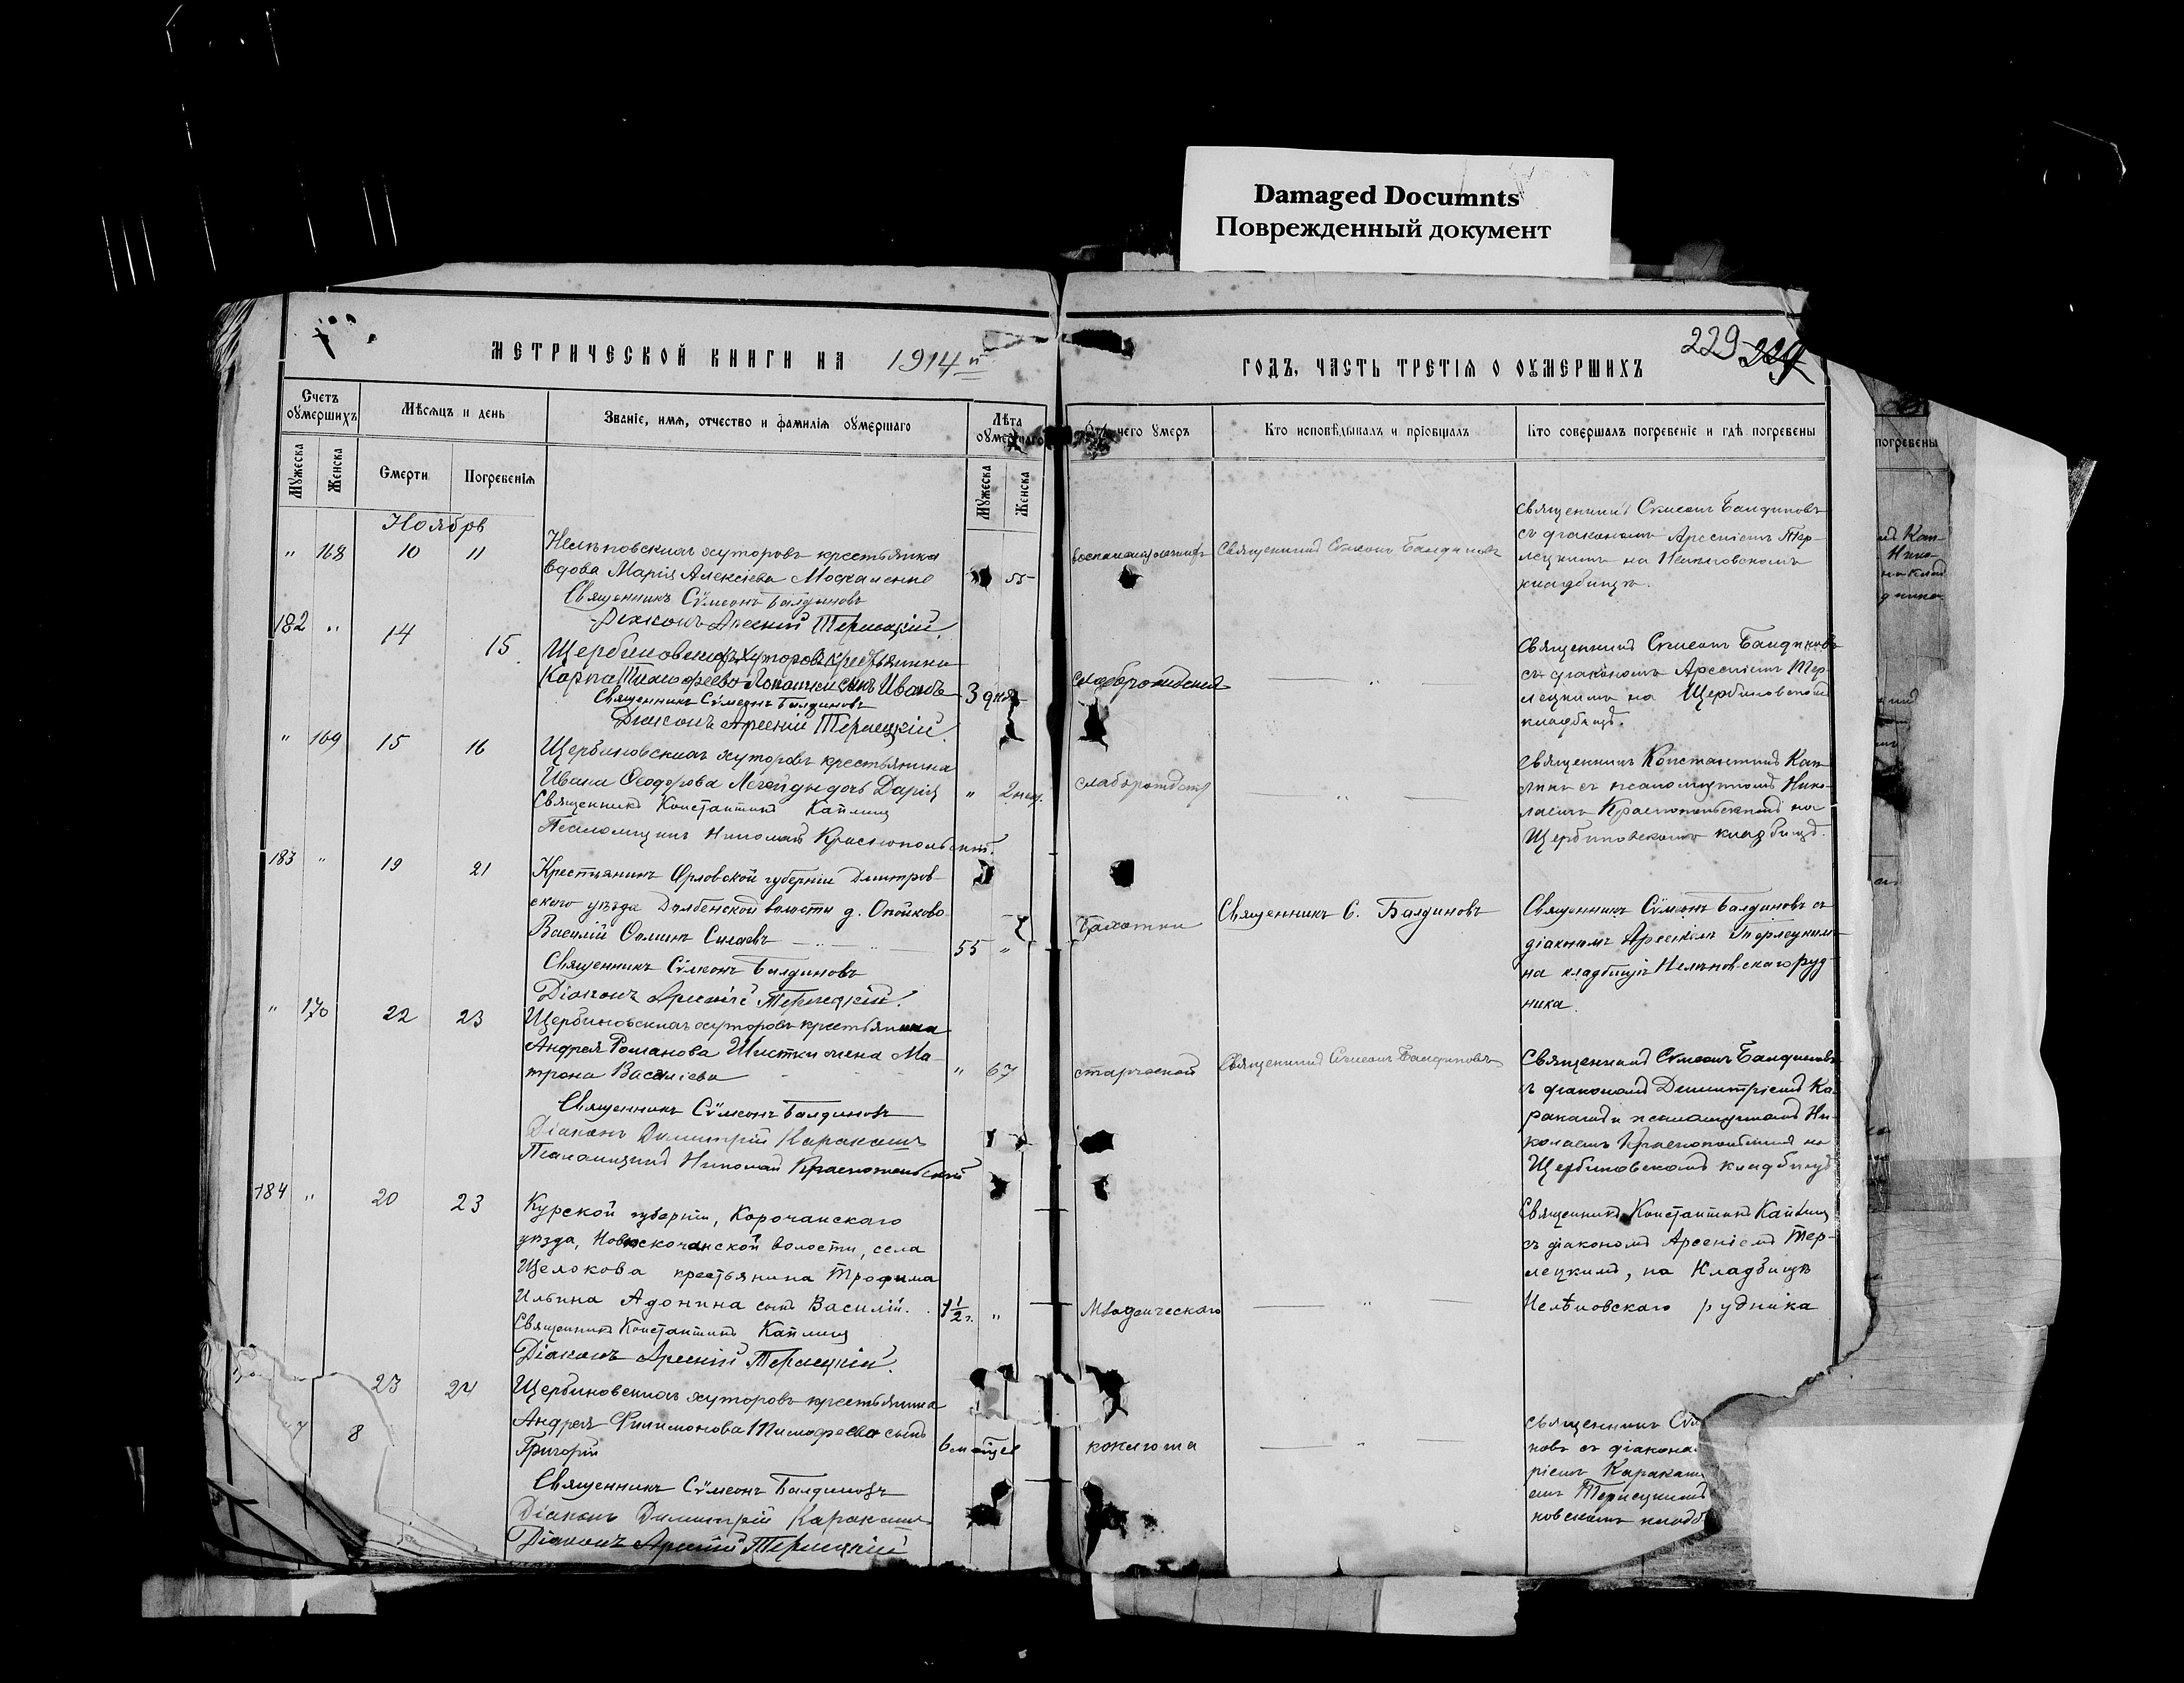 Damaged Documnts
Поврежденный документ
229 229
МЕТРИЧЕСКОЙ КНИГИ НА 1914й ГОДЪ, ЧАСТЬ ТРЕТІЯ О ОУМЕРШИХЪ
Счетъ оумершихъ
Мѣсяцъ и день
Званіе, имя, отчество и фамилія оумершаго
Лѣта оумершаго
чего умеръ
Кто исповѣдывалъ и пріобщалъ
Кто совершалъ погребеніе и гдѣ погребены
Мужеска
Женска
Смерти
Погребенія
Мужеска
Женска
погребены
Ноябрь
" 168 10 11
Нелѣповскихъ хуторовъ крестьянка
вдова Марія Алексіева Москаленко
55
Священникъ Сѵмеонъ Балдиновъ
Діаконъ Арсеній Терлецкій.
Священникъ Сѵмеонъ Балдиновъ
Священникъ Сѵмеонъ Балдиновъ
съ діакономъ Арсеніемъ Тер-
лецкимъ на Нелѣповскомъ
кладбищѣ.
182 " 14 15
Щербиновскихъ хуторовъ крестьянина
Карпа Тимофеева сынъ Иванъ
3 дня
Священникъ Сѵмеонъ Балдиновъ
Діаконъ Арсеній Терлецкій.
слаборожденія
"
Священникъ Сѵмеонъ Балдиновъ
съ діакономъ Арсеніемъ Тер-
лецкимъ на Щербиновскомъ
кладбищѣ.
" 169 15 16
Щербиновскихъ хуторовъ крестьянина
Ивана Ѳеодорова дочь Дарія
" 2 нед.
Священникъ Константинъ Каплинъ
Псаломщикъ Николай Краснопольскій.
слаборожден
"
Священникъ Константинъ Кап-
линъ съ псаломщикомъ Нико-
лаемъ Краснопольскимъ на
Щербиновскомъ кладбищѣ.
183 " 19 21
Крестьянинъ Орловской губерніи Дмитров-
скаго уѣзда волости д. Опойково
Василій Силаевъ
55 "
Священникъ Сѵмеонъ Балдиновъ
Діаконъ Арсеній Терлецкій.
Чахотки
Священникъ С. Балдиновъ
Священникъ Сѵмеонъ Балдиновъ съ
діакономъ Арсеніемъ Терлецкимъ
на кладбищѣ Нелѣповскаго руд-
ника.
" 170 22 23
Щербиновскихъ хуторовъ крестьянина
Андрея Романова жена Ма-
трона Василіева
" 67
Священникъ Сѵмеонъ Балдиновъ
Діаконъ Димитрій Каракашъ
Псаломщикъ Николай Краснопольскій
старческой
Священникъ Сѵмеонъ Балдиновъ
Священникъ Сѵмеонъ Балдиновъ
съ діакономъ Димитріемъ Ка-
ракашъ и псаломщикомъ Ни-
колаемъ Краснопольскимъ на
Щербиновскомъ кладбищѣ
184 " 20 23
Курской губерніи, Корочанскаго
уѣзда, волости, села
Щелокова крестьянина Трофима
Ильина Адонина сынъ Василій.
1½ г. "
Священникъ Константинъ Каплинъ
Діаконъ Арсеній Терлецкій.
Младенческаго
"
Священникъ Константинъ Каплинъ
съ діакономъ Арсеніемъ Тер-
лецкимъ, на Кладбищѣ
Нелѣповскаго рудника
8 23 24
Щербиновскихъ хуторовъ крестьянина
Андрея Филимонова Тимофеева сынъ
Григорій
6 мѣсяцев
Священникъ Сѵмеонъ Балдиновъ
Діаконъ Димитрій Каракашъ
Діаконъ Арсеній Терлецкій
коклюша
"
Священникъ Сѵм
новъ съ діакона
ріемъ Каракаш
емъ Терлецкимъ
новскомъ кладб